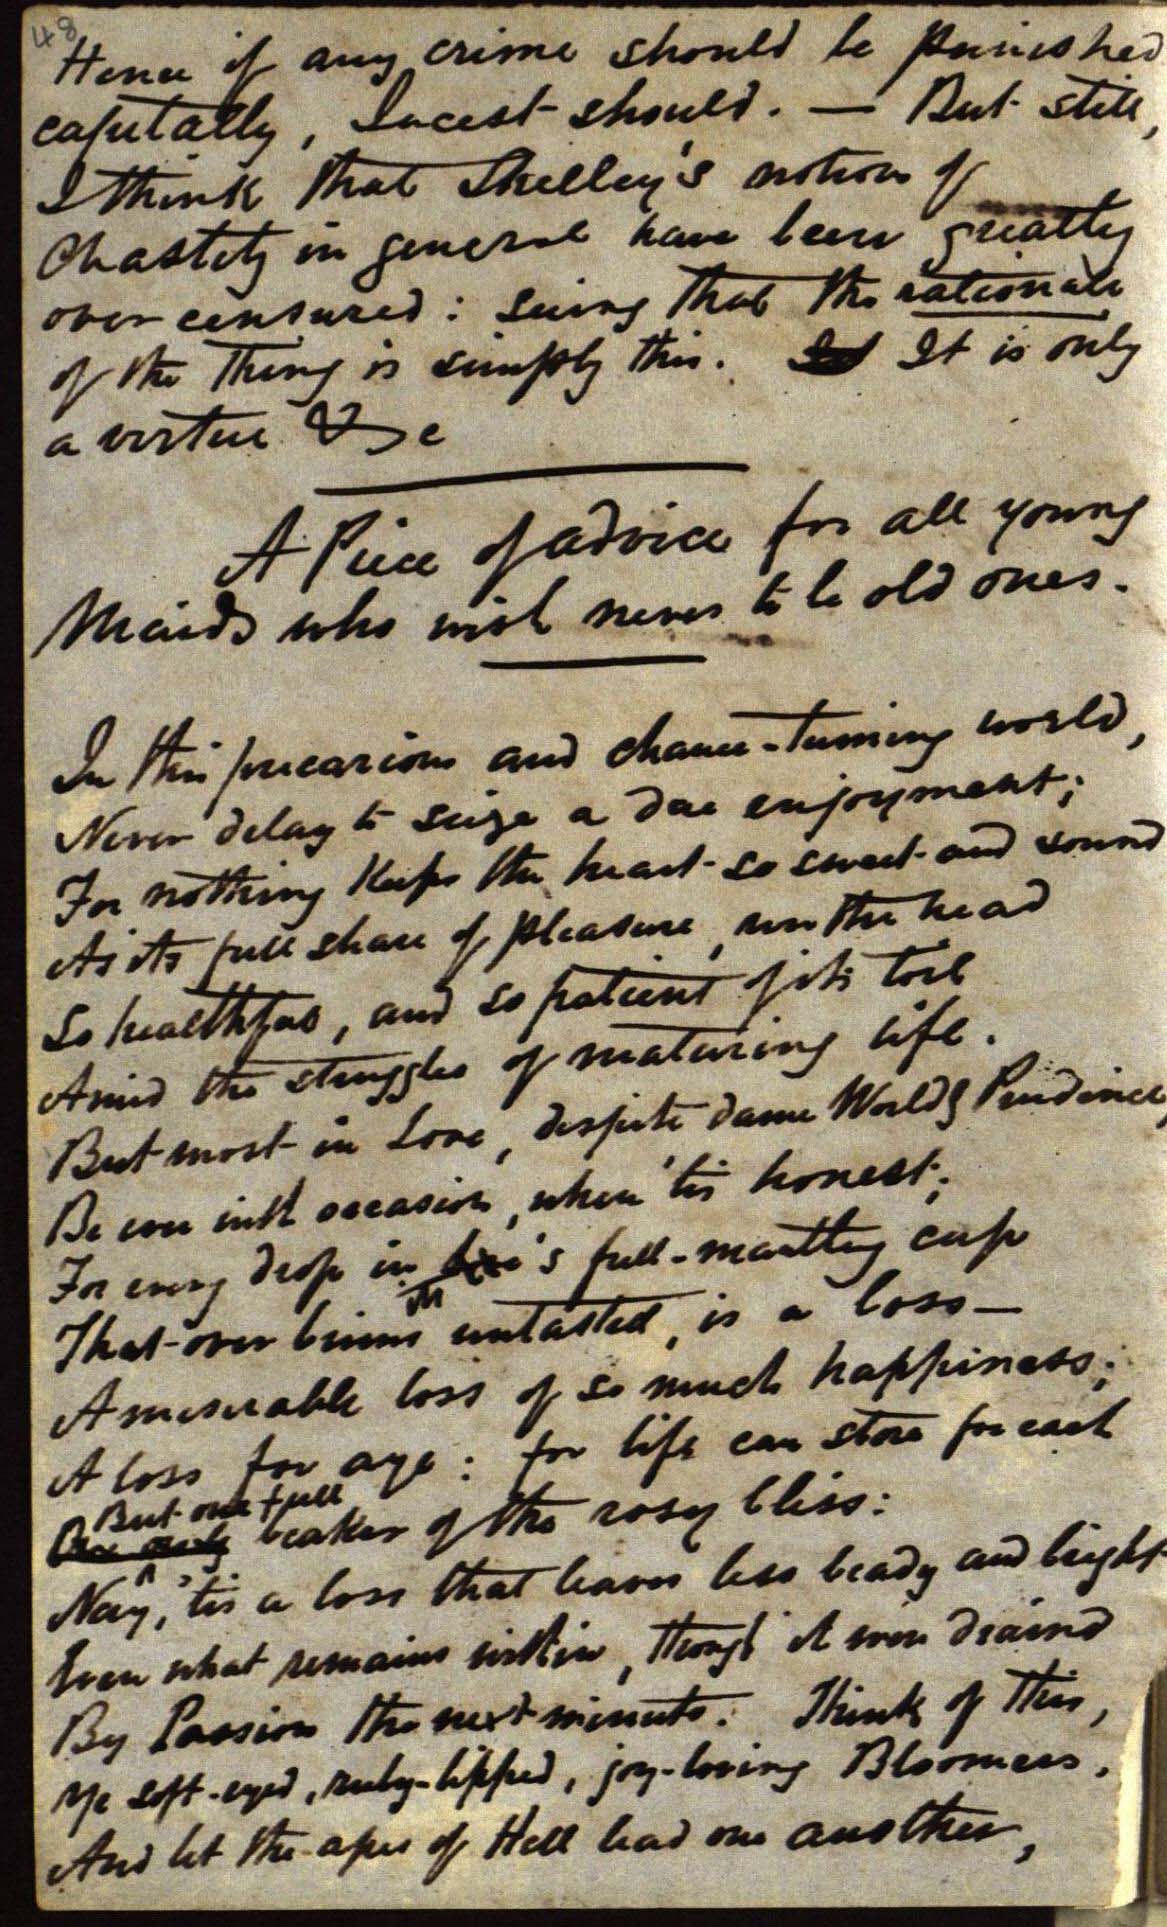 48
Hence if any crime should be punished
capitally, Incest should. — But still,
I think that Shelley's notions of
Chastity in general have been greatly
over censured: seeing that the rationale
of the thing is simply this. It is only
a virtue &c
A Piece of advice for all young
Maids who wish never to be old ones.
In this precarious and chance-turning world,
Never delay to seize a due enjoyment;
For nothing keeps the heart so sweet and sound
As its full share of pleasure, nor the head
So healthful, and so patient of its toil
Amid the struggles of maturing life.
But most in Love, despite dame Worldly Prudence,
Be one with occasion, when 'tis honest;
For every drop in 's full-mantling cup
That over brims untasted, is a loss—
A miserable loss of so much happiness;
A loss for aye: for life can store for each
But one full
beaker of the rosy bliss:
Nay, 'tis a loss that leaves less beady and bright
Even what remains within, though it were draind
By Passion the next minute. Think of this,
Ye soft-eyed, ruby-lipped, joy-loving Bloomers,
And let the apes of Hell lead one another,